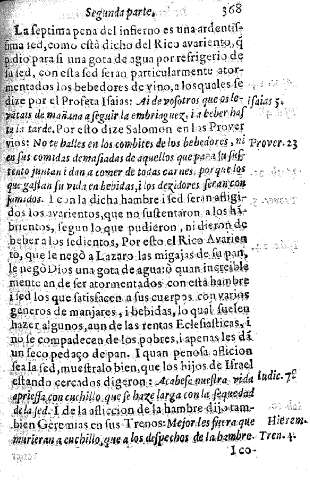 Segunda parte. 368
La septima pena del infierno es una ardentis-
sima sed, como está dicho del Rico avariento, q̃
pidio para si una gota de agua por refrigerio de
su sed, con esta sed seran particularmente ator-
mentados los bebedores de vino, a los quales se
dize por el Profeta Isaias: Ai de vosotros que os le-
vãtais de mañana a seguir la embriaguez, i a beber has-
ta la tarde. Por esto dize Salomon en los Prover
vios: No te halles en los combites de los bebedores, ni
en sus comidas demasiadas de aquellos que para su sus-
tento juntan i dan a comer de todas carnes, porque los
que gastan su vida en bebidas, i los dezidores seran con
sumidos. I con la dicha hambre i sed seran afligi-
dos los avarientos, que no sustentaron a los hã-
brientos, segun lo que pudieron, ni dieron de
beber a los sedientos. Por esto el Rico Avarien
to, que le negò a Lazaro las migajas de su pan,
le negò Dios una gota de agua: ô quan increible
mente an de ser atormentados con esta hambre
i sed los que satisfacen a sus cuerpos con varios
generos de manjares, i bebidas, lo qual suelen
hazer algunos, aun de las rentas Eclesiasticas, i
no se compadecen de los pobres, i apenas les dã
un seco pedaço de pan. I quan penosa aflicion
sea la sed, muestralo bien, que los hijos de Israel
estando cercados digeron: Acabese nuestra vida
apriessa con cuchillo, que se haze larga con la sequedad
de la sed. I de la afliccion de la hambre dijo tam-
bien Geremias en sus Trenos: Mejor les fuera que
murieran a cuchillo, que a los despechos de la hambre.
I co-
Isaias 5.
Prover. 23
Iudic. 7.
Hierem.
Tren. 4.